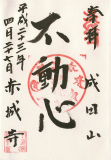 奉拝 成田山
不動心
平成二十三年
四月二十七日 赤城寺